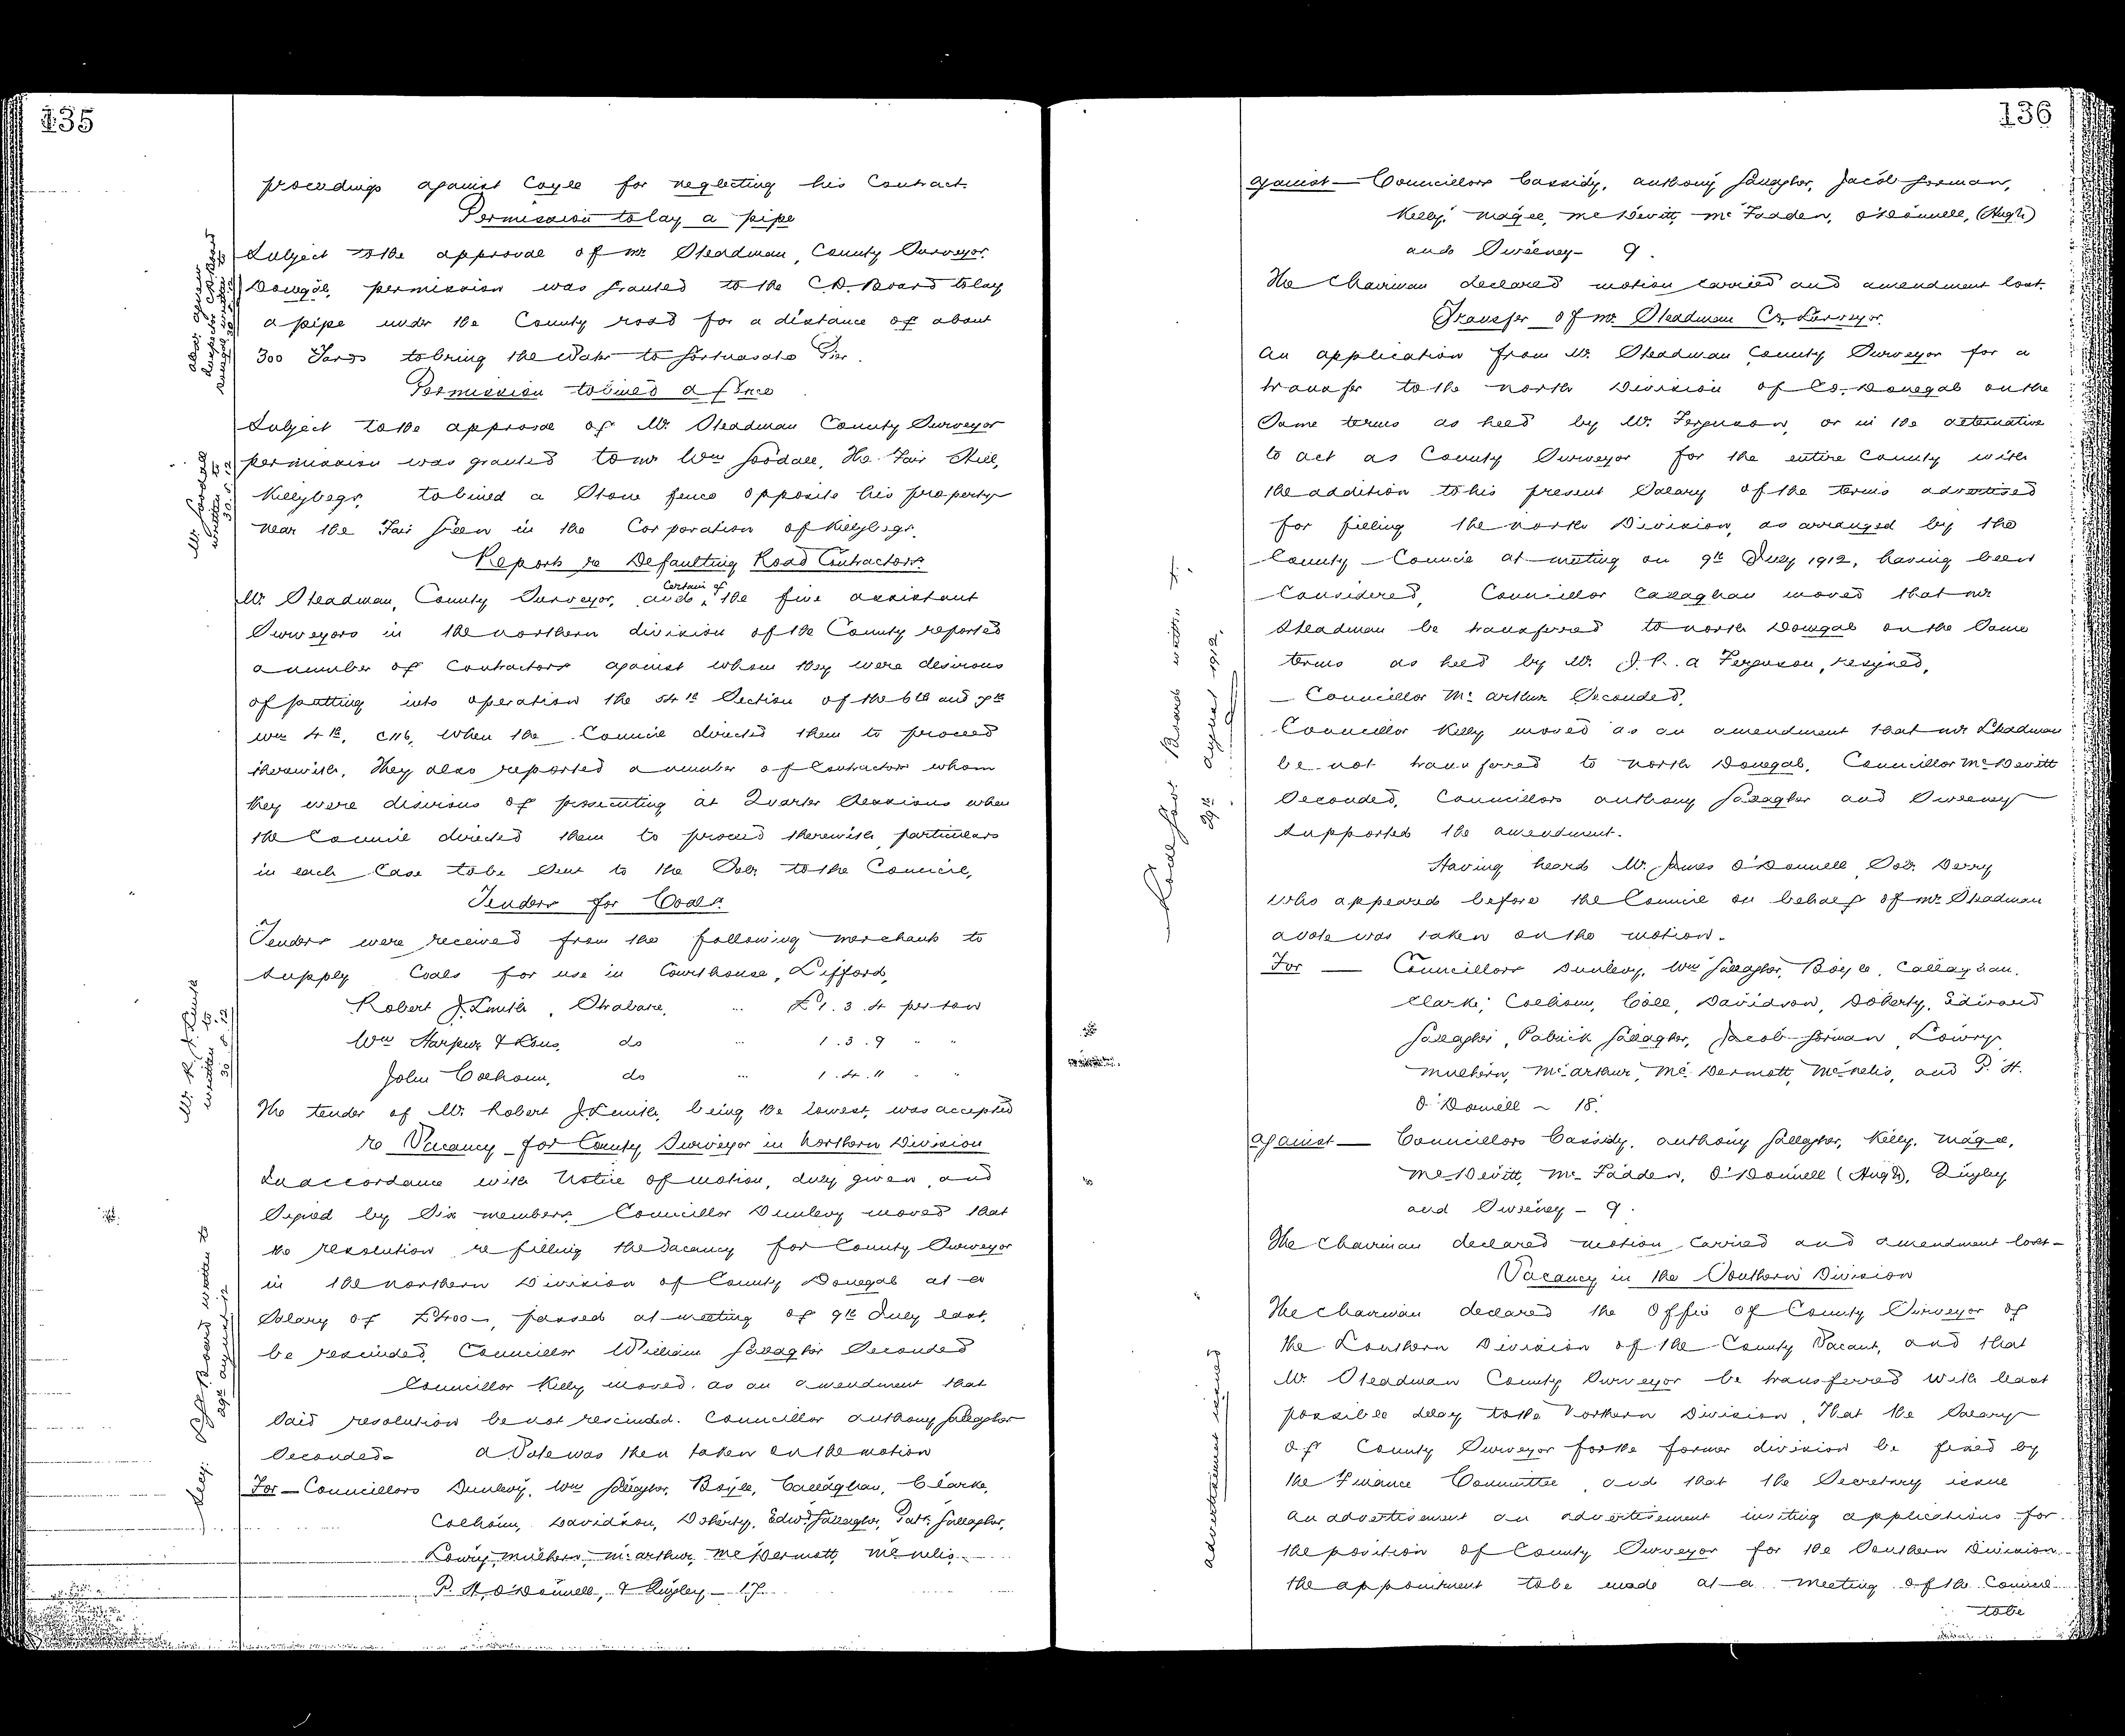 135
proceedings against Coyle for neglecting his Contract.
Permission to lay a pipe
Subject to the approval of Mr Steadman, County Surveyor
Donegal, permission was granted to the C.D. Board to lay
a pipe under the County road for a distance of about
300 Yards to bring the Water to Portnasalo Pier.
Permission to build a fence
Subject to the approval of Mr. Steadman County Surveyor
permission was granted to Mr Wm Goodall, The Fair Hill,
Killybegs, to build a Stone fence opposite his property
near the Fair Green in the Corporation of Killybegs.
Report re Defaulting Road Contractors
Mr. Steadman, County Surveyor, and certain of the five assistant
Surveyors in the northern division of the County reported
a number of Contractors against whom they were desirous
of putting into operation the 54th Section of the 6th and 7th
Wm 4th, C116, when the Council directed them to proceed
therewith. They also reported a number of Contractors whom
they were desirous of prosecuting at Quarter Sessions when
the Council directed them to proceed therewith, particulars
in each Case to be Sent to the Solr. to the Council.
Tenders for Coals
Tenders were received from the following merchants to
supply Coals for use in Courthouse, Lifford,
Robert J. Smith, Strabane, ... £1.3.4 per ton
Wm Harpur & Sons, do ... 1.3.9 " "
John Colhoun, do ... 1.4.11 " "
The tender of Mr. Robert J. Smith, being the lowest, was accepted
re Vacancy for County Surveyor in Northern Division
In accordance with Notice of motion, duly given, and
Signed by Six members, Councillor Dunlevy moved that
the resolution re filling the Vacancy for County Surveyor
in the northern Division of County Donegal at a
Salary of £400-, passed at meeting of 9th July last,
be rescinded, Councillor William Gallagher Seconded
Councillor Kelly moved as an amendment that
Said resolution be not rescinded. Councillor Anthony Gallagher
Seconded- A Vote was then taken on the motion
For — Councillors Dunlevy, Wm Gallagher, Boyle, Callaghan, Clarke,
Colhoun, Davidson, Doherty, Edwd. Gallagher, Patk. Gallagher,
Lowry, Mulhern, McArthur, McDermott, McNelis
P. H. O'Donnell, & Quigley — 17
Mr. Goodall
written to
30.8.12
Mr. R. J. Smith
written to
30.8.12
Secy. L.G. Board written to
29th August 12
136
Against — Councillors Cassidy, Anthony Gallagher, Jacob Gorman,
Kelly, Magee, McDevitt, McFadden, O'Donnell, (Hugh)
and Sweeney - 9.
The Chairman declared motion carried and amendment lost.
Transfer of Mr. Steadman Co. Surveyor.
An application from Mr. Steadman County Surveyor for a
transfer to the North Division of Co. Donegal on the
Same terms as held by Mr. Ferguson, or in the alternative
to act as County Surveyor for the entire County with
the addition to his present Salary of the terms advertised
for filling the north Division, as arranged by the
County Council at meeting on 9th July 1912, having been
Considered, Councillor Callaghan moved that Mr
Steadman be transferred to North Donegal on the Same
terms as held by Mr. J. P. A Ferguson, resigned,
— Councillor McArthur Seconded.
Councillor Kelly moved as an amendment that Mr Steadman
be not transferred to North Donegal, Councillor McDevitt
Seconded, Councillors Anthony Gallagher and Sweeney
supported the amendment.
Having heard Mr. James O'Donnell Solr. Derry
who appeared before the Council on behalf of Mr. Steadman
a vote was taken on the motion.
For — Councillors Dunlevy, Wm Gallagher, Boyle, Callaghan,
Clarke, Colhoun, Coll, Davidson, Doherty, Edward
Gallagher, Patrick Gallagher, Jacob Gorman, Lowry
Mulhern, McArthur, McDermott, McNelis, and P. H.
O'Donnell — 18.
Against — Councillors Cassidy, Anthony Gallagher, Kelly, Magee,
McDevitt, McFadden, O'Donnell (Hugh), Quigley
and Sweeney — 9.
The Chairman declared motion carried and amendment lost —
Vacancy in the Southern Division
The Chairman declared the Office of County Surveyor of
the Southern Division of the County Vacant, and that
Mr. Steadman County Surveyor be transferred with least
possible delay to the Northern Division, That the Salary
of County Surveyor for the former division be fixed by
the Finance Committee, and that the Secretary issue
an advertisement an advertisement inviting applications for
the position of County Surveyor for the Southern Division
the appointment to be made at a meeting of the Council
to be
Local Govt Board written to
29th August 1912,
advertisement issued